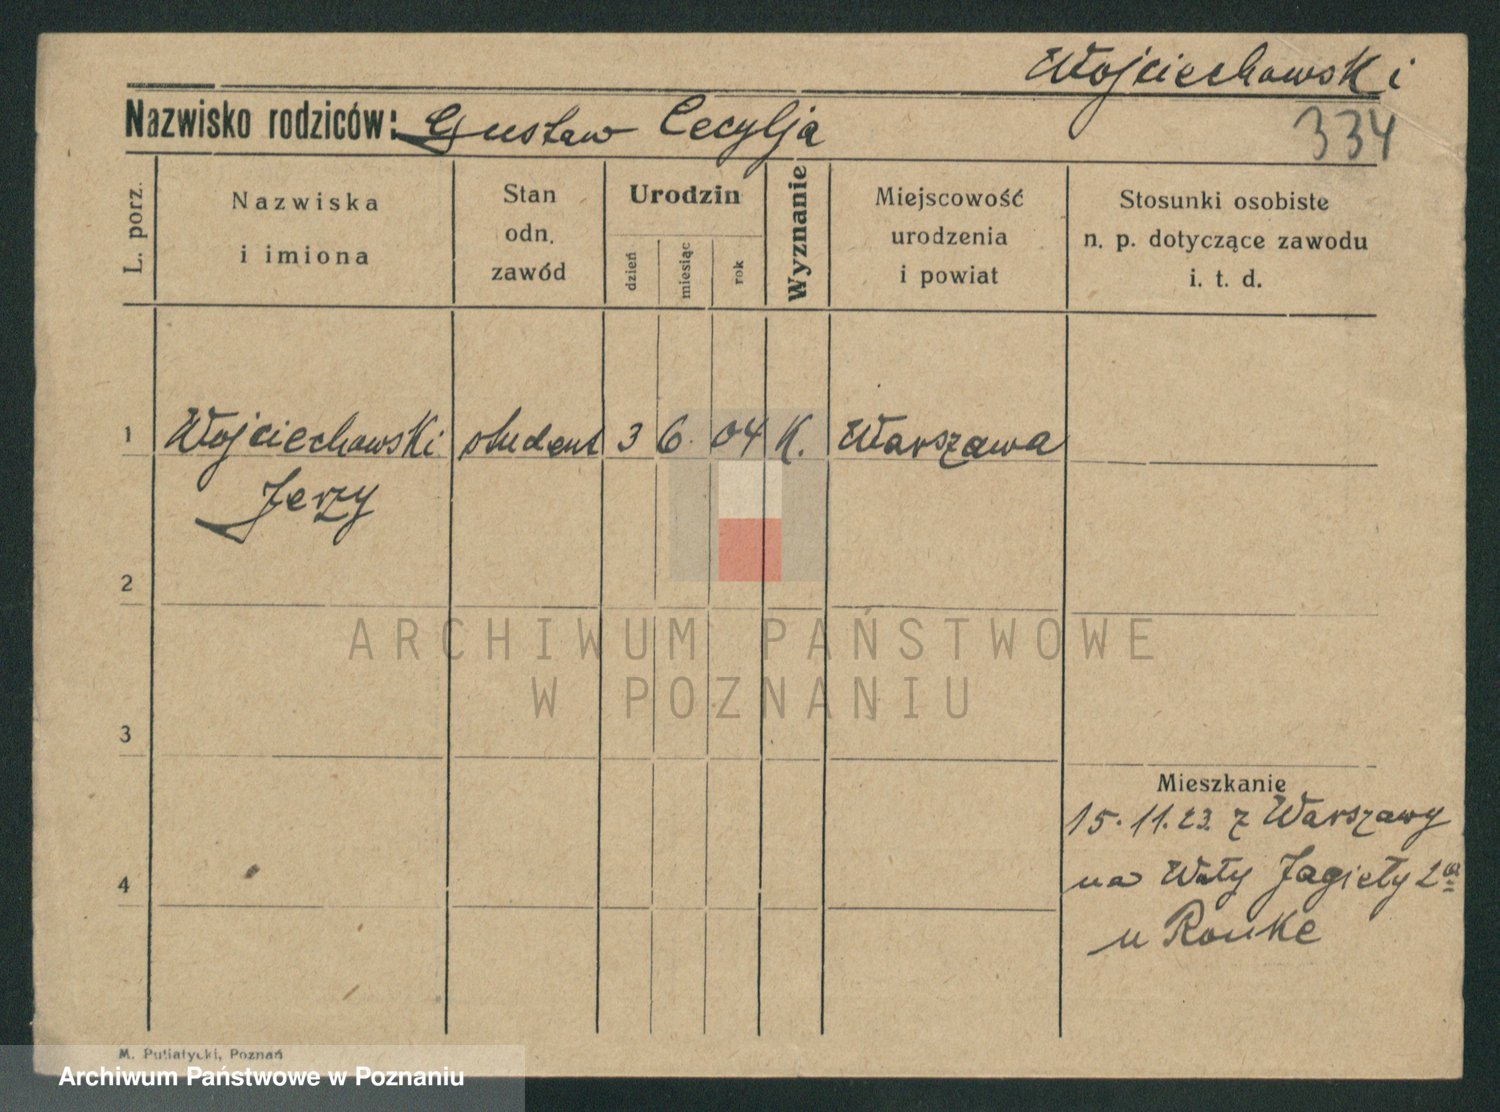 Wojciechowski
Nazwisko rodziców: Gustaw Cecylja
334
L. porz.
Nazwiska
i imiona
Stan
odn.
zawód
Urodzin
dzień
miesiąc
rok
Wyznanie
Miejscowość
urodzenia
i powiat
Stosunki osobiste
n. p. dotyczące zawodu
i. t. d.
1 Wojciechowski student 3 6. 04 K. Warszawa
Jerzy
2
ARCHIWUM PAŃSTWOWE
W POZNANIU
3
Mieszkanie
15.11.23. z Warszawy
4
na Wały Jagiełły 2a
u Ronke
M. Putiatycki, Poznań
Archiwum Państwowe w Poznaniu